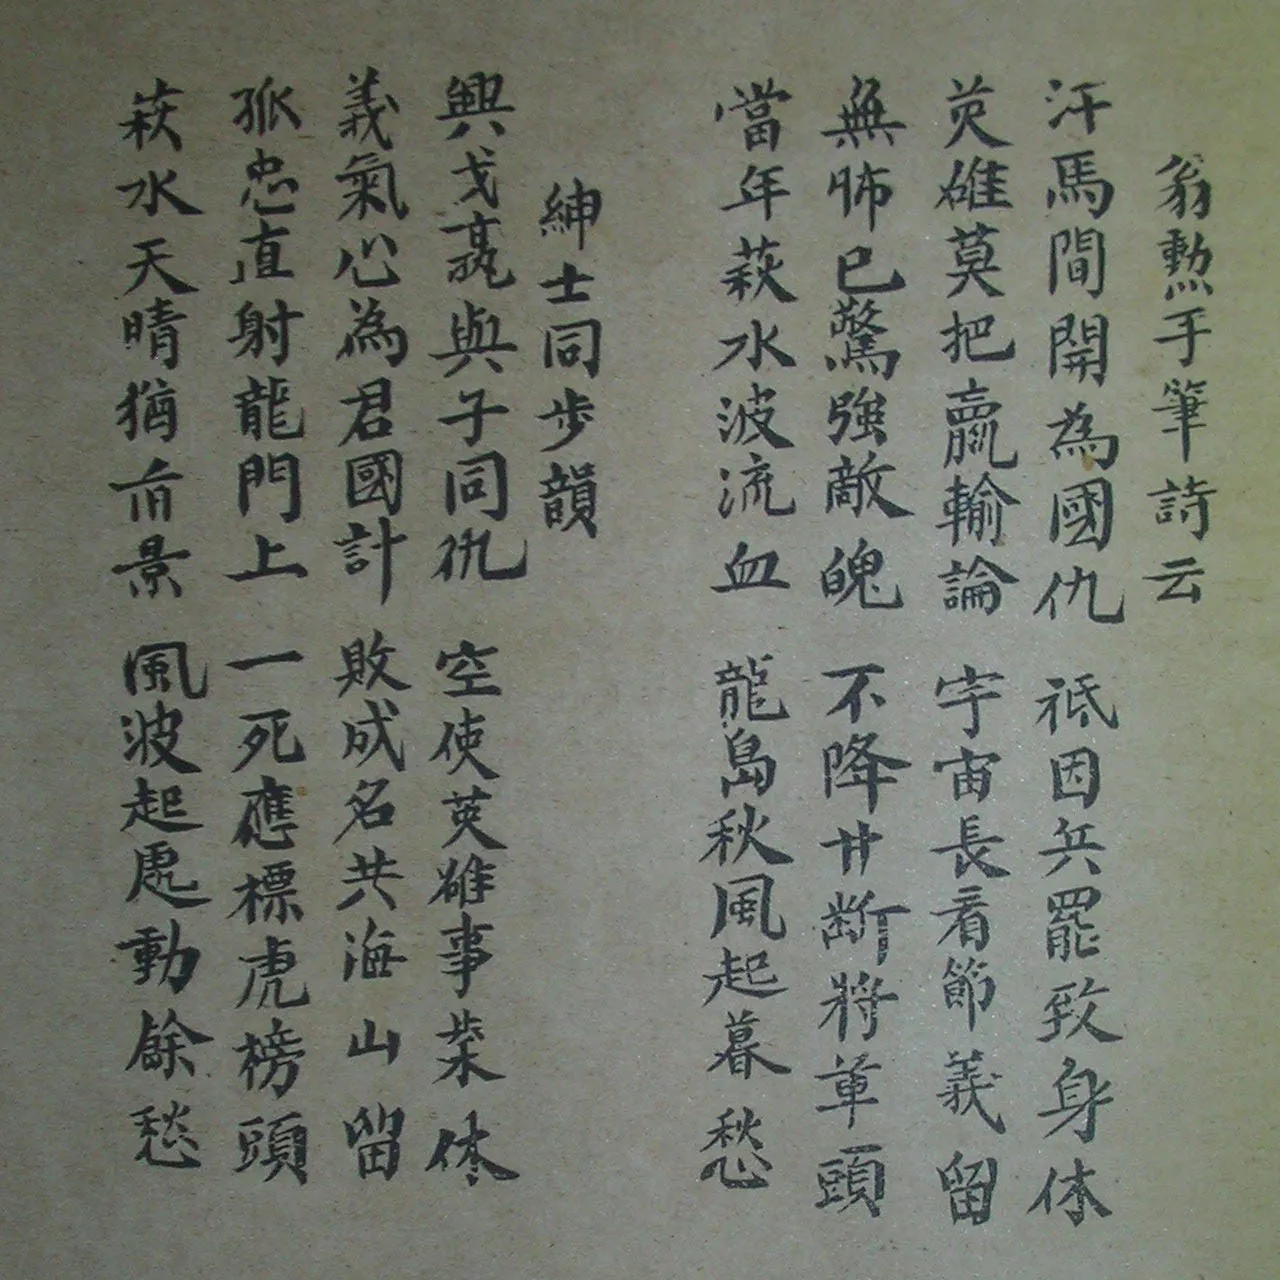 翁勲手筆詩云
汗馬間開為國仇 祗因兵罷致身休
英雄莫把贏輸論 宇宙長看節義留
無怖已驚強敵魄 不降甘斷將軍頭
當年萩水波流血 龍島秋風起暮愁
紳士同步韻
興戈與子同仇 空使英雄事業休
義氣心為君國計 敗成名共海山留
孤忠直射龍門上 一死應標虎榜頭
萩水天晴猶有景 風波起處動餘愁